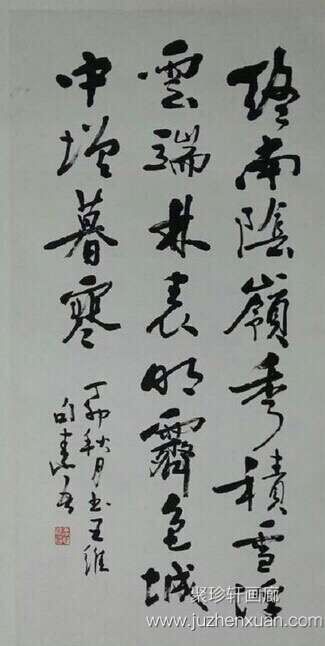 終南陰嶺秀積雪浮
雲端林表明霽色城
中增暮寒
丁卯秋月书王維
句
聚珍轩画廊
www.juzhenxuan.com